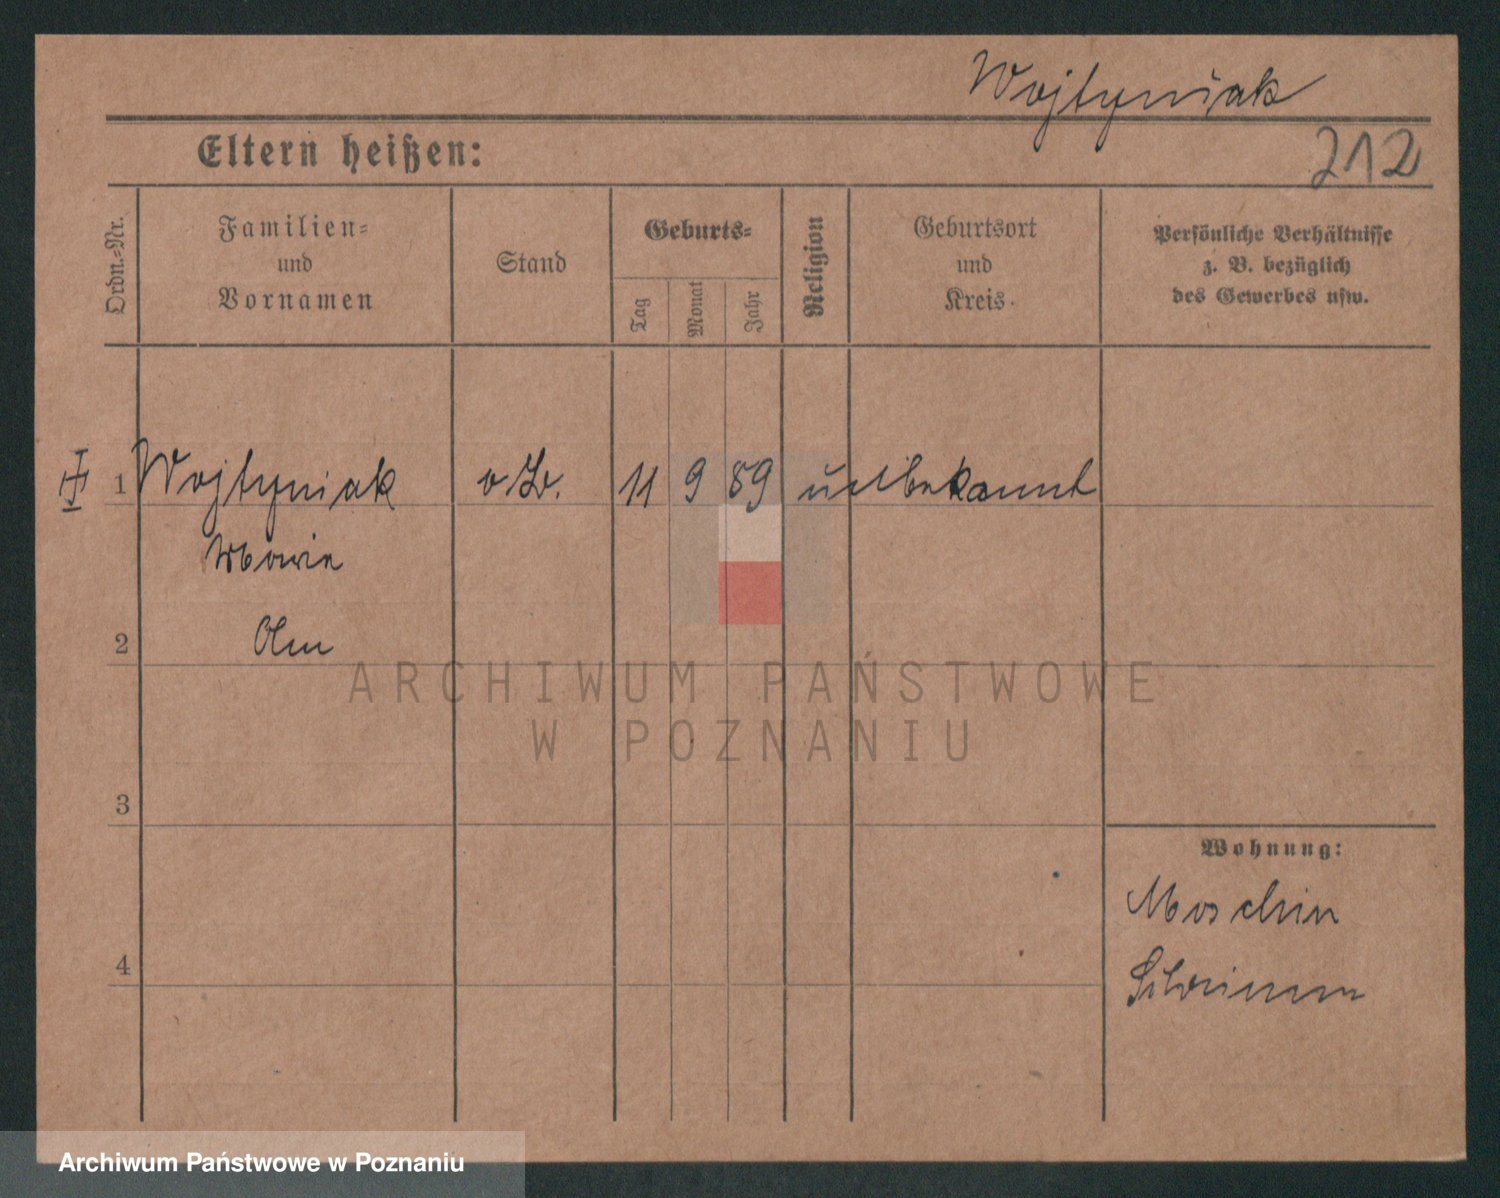 Wojtyniak
Eltern heißen:
212
Ordn.=Nr.
Familien=
und
Vornamen
Stand
Geburts=
Tag
Monat
Jahr
Religion
Geburtsort
und
Kreis.
Persönliche Verhältnisse
z. B. bezüglich
des Gewerbes usw.
1 Wojtyniak 11 9 89 unbekannt
Marie
2
3
4
Wohnung:
Moschin
ARCHIWUM PAŃSTWOWE
W POZNANIU
Archiwum Państwowe w Poznaniu